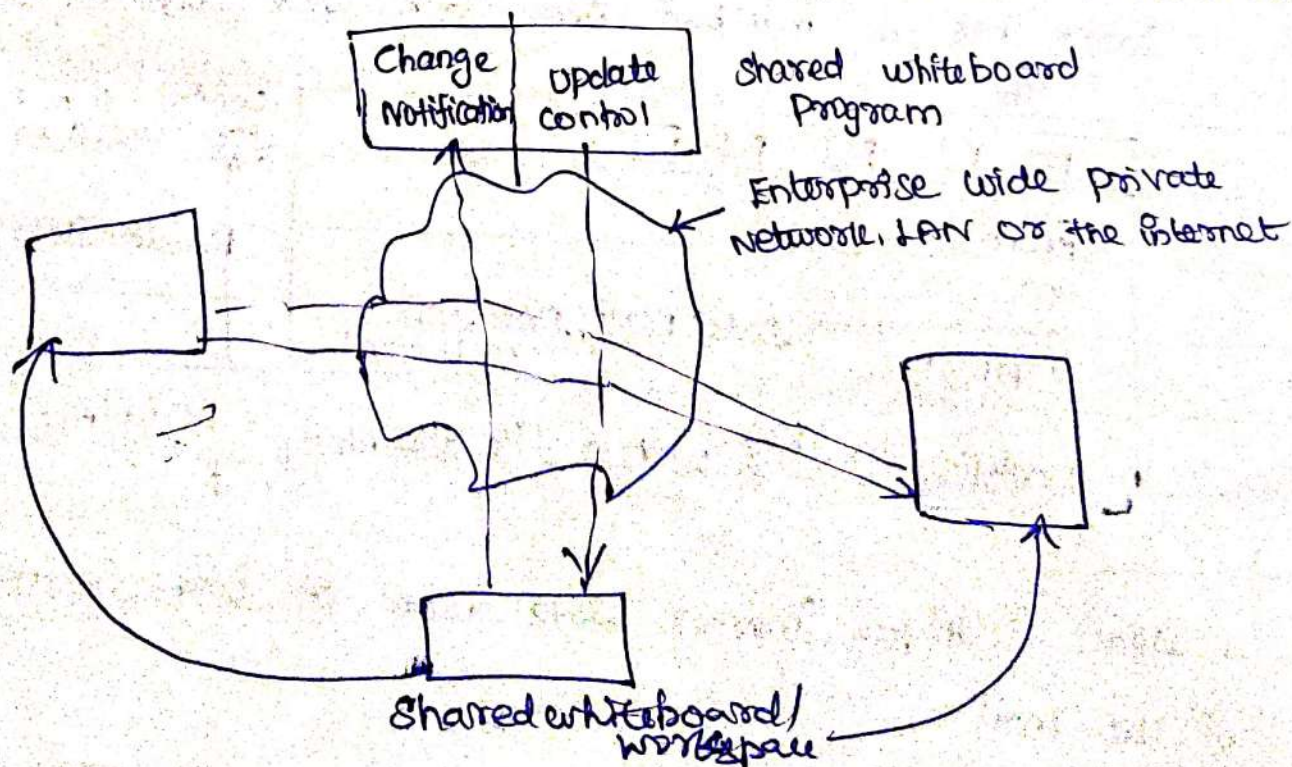 Change
Notification
Update
control
Shared whiteboard
Program
Enterprise wide private
Network, LAN or the internet
Shared whiteboard/
workspace